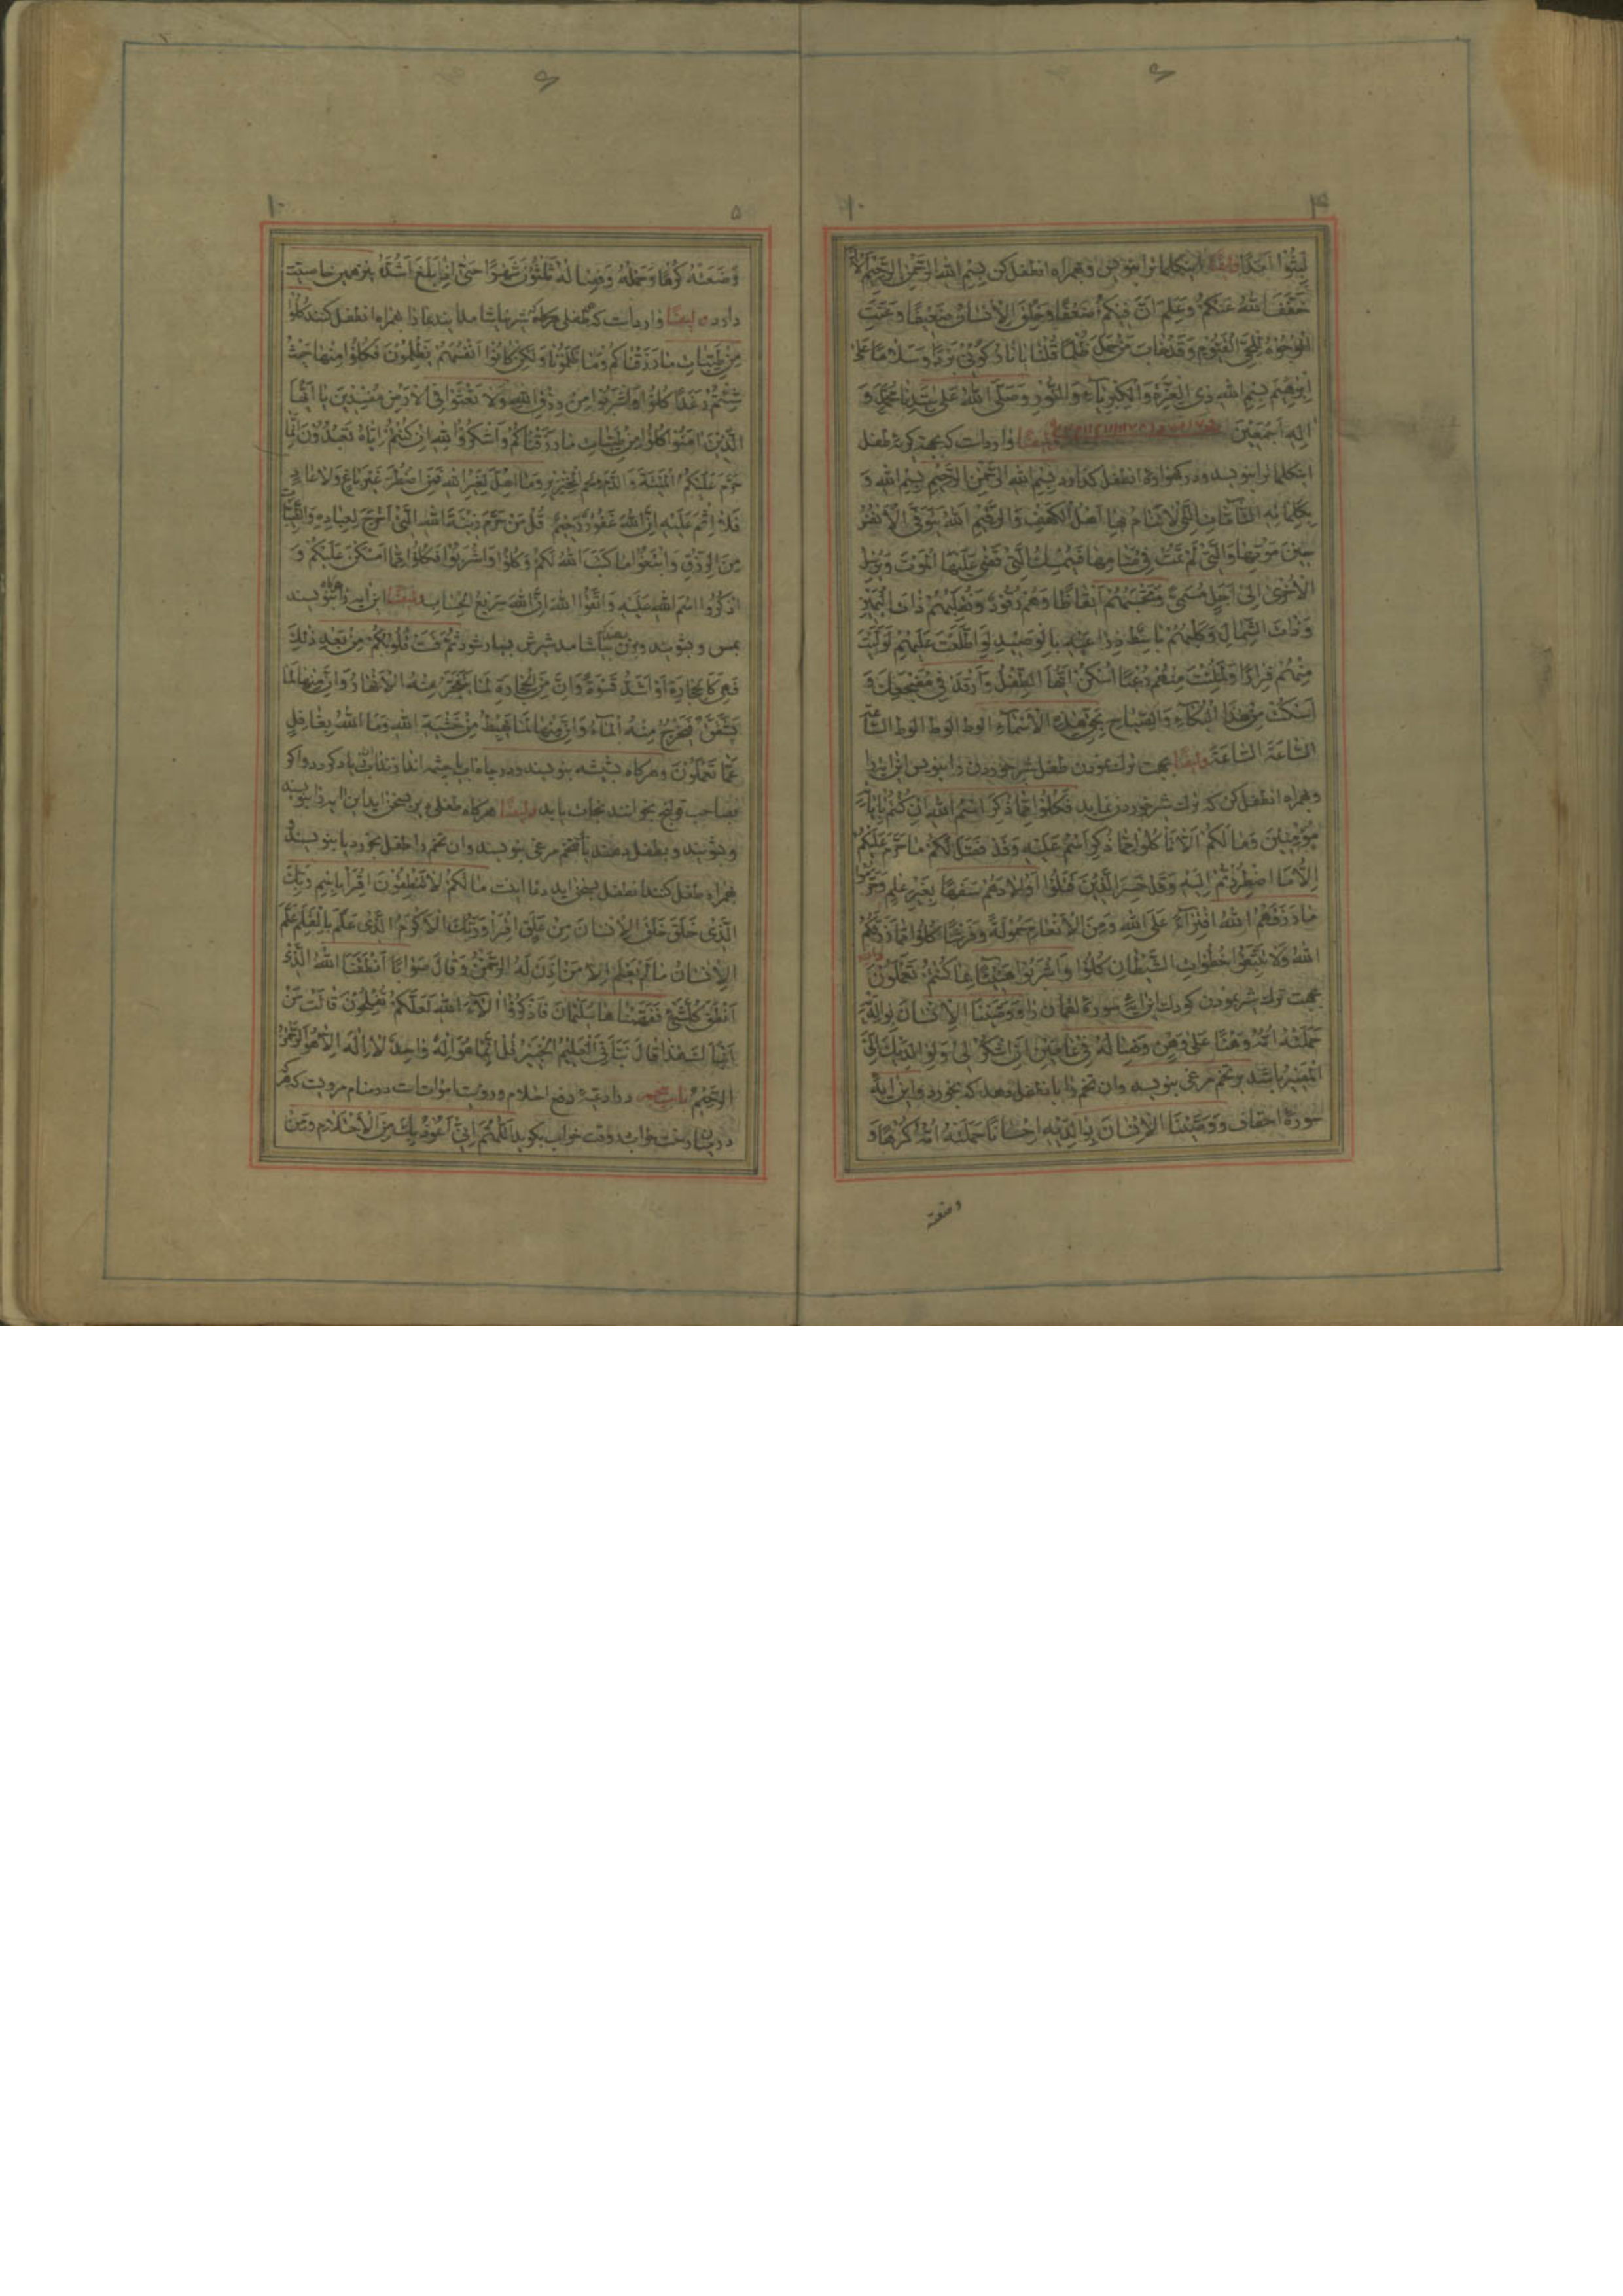 لَبِثُوا اَمَدًا ایضًا اینکلمات را بنویس و همراه انطفل کن بِسْمِ اللهِ الرَّحْمٰنِ الرَّحیمِ اَلْآنَ
خَفَّفَ اللهُ عَنْکُمْ وَعَلِمَ اَنَّ فیکُمْ ضَعْفًا وَخُلِقَ الْاِنْسانُ ضَعیفًا وَعَنَتِ
الْوُجُوهُ لِلْحَیِّ الْقَیُّومِ وَقَدْ خابَ مَنْ حَمَلَ ظُلْمًا قُلْنا یا نارُ کُونی بَرْدًا وَسَلامًا عَلی
اِبْرهیمَ بِسْمِ اللهِ ذِی الْعِزَّةِ وَالْکِبْرِیآءِ وَالنُّورِ وَصَلَّی اللهُ عَلی سَیِّدِنا مُحَمَّدٍ وَ
الِهِ اَجْمَعینَ ایضًا واردات که بجهة کریۀ طفل
اینکلمات را بنویسد و در کهوارۀ انطفل کذارد بِسْمِ اللهِ الرَّحْمٰنِ الرَّحیمِ بِسْمِ اللهِ وَ
بِکَلِماتِهِ التّآمّاتِ الَّتی لاٰتَنامُ بِها اَهْلُ الْکَهْفِ وَالرَّقیمِ اَللهُ یَتَوَفَّی الْاَنْفُسَ
حینَ مَوْتِها وَالَّتی لَمْ تَمُتْ فی مَنامِها فَیُمْسِکُ الَّتی قَضی عَلَیْهَا الْمَوْتَ وَیُرْسِلُ
الْاُخْری اِلی اَجَلٍ مُسَمًّی وَتَحْسَبُهُمْ اَیْقاظًا وَهُمْ رُقُودٌ وَنُقَلِّبُهُمْ ذاتَ الْیَمینِ
وَذاتَ الشِّمالِ وَکَلْبُهُمْ باسِطٌ ذِراعَیْهِ بِالْوَصیدِ لَوِ اطَّلَعْتَ عَلَیْهِمْ لَوَلَّیْتَ
مِنْهُمْ فِرارًا وَلَمُلِئْتَ مِنْهُمْ رُعْبًا اُسْکُنْ اَیُّهَا الطِّفْلُ وَارْقُدْ فی مَضْجَعِکَ وَ
اسْکُتْ مِنْ هذَا الْبُکآءِ وَالصِّیاحِ بِحَقِّ هذِهِ الْاَسْمآءِ الوط الوط الوط السّاعَةَ
السّاعَةَ السّاعَةَ ایضًا بجهت ترك نمودن طفل شیر خوردن را بنویس این ایه را
و همراه انطفل کن که ترك شیر خوردن نماید فَکُلُوا مِمّا ذُکِرَ اسْمُ اللهِ اِنْ کُنْتُمْ بِایاتِهِ
مُؤْمِنینَ وَمالَکُمْ اَلّا تَأْکُلُوا مِمّا ذُکِرَ اسْمُ عَلَیْهِ وَقَدْ فَصَّلَ لَکُمْ ما حَرَّمَ عَلَیْکُمْ
اِلّا مَا اضْطُرِرْتُمْ اِلَیْهِ وَقَدْ خَسِرَ الَّذینَ قَتَلُوا اَوْلادَهُمْ سَفَهًا بِغَیْرِ عِلْمٍ وَحَرَّمُوا
ما رَزَقَهُمُ اللهُ افْتِرآءً عَلَی اللهِ وَمِنَ الْاَنْعامِ حَمُولَةً وَفَرْشًا کُلُوا مِمّا رَزَقَکُمُ
اللهُ وَلا تَتَّبِعُوا خُطُواتِ الشَّیْطانِ کُلُوا وَاشْرَبُوا هَنیئًا بِما کُنْتُمْ تَعْمَلُونَ
بجهت ترك شیر نمودن کودك این ایه سورۀ لقمان را وَوَصَّیْنَا الْاِنْسانَ بِوالِدَیْهِ
حَمَلَتْهُ اُمُّهُ وَهْنًا عَلی وَهْنٍ وَفِصالُهُ فی عامَیْنِ اَنِ اشْکُرْ لی وَلِوالِدَیْكَ اِلَیَّ
الْمَصیرُ باشد بر تخم مرغی بنویسد وان تخم را بانطفل دهد که بخورد و این ایۀ
سورۀ احقاف وَوَصَّیْنَا الْاِنْسانَ بِوالِدَیْهِ اِحْسانًا حَمَلَتْهُ اُمُّهُ کُرْهًا وَ
وضعته
۱۰
۵
وَضَعَتْهُ کُرْهًا وَحَمْلُهُ وَفِصالُهُ ثَلثُونَ شَهْرًا حَتّی اِذا بَلَغَ اَشُدَّهُ نیز همین خاصیت
دارد ایضًا واردات که طفلی که شیر نیاشامد اینها را همراه انطفل کنند کُلُوا
مِنْ طَیِّباتِ ما رَزَقْناکُمْ وَما ظَلَمُونا وَلکِنْ کانُوا اَنْفُسَهُمْ یَظْلِمُونَ فَکُلُوا مِنْها حَیْثُ
شِئْتُمْ رَغَدًا کُلُوا وَاشْرَبُوا مِنْ رِزْقِ اللهِ وَلا تَعْثَوْا فِی الْاَرْضِ مُفْسِدینَ یا اَیُّهَا
الَّذینَ امَنُوا کُلُوا مِنْ طَیِّباتِ ما رَزَقْناکُمْ وَاشْکُرُوا لِلّهِ اِنْ کُنْتُمْ اِیّاهُ تَعْبُدُونَ اِنَّما
حَرَّمَ عَلَیْکُمُ الْمَیْتَةَ وَالدَّمَ وَلَحْمَ الْخِنْزیرِ وَما اُهِلَّ لِغَیْرِ اللهِ فَمَنِ اضْطُرَّ غَیْرَ باغٍ وَلا عادٍ
فَلا اِثْمَ عَلَیْهِ اِنَّ اللهَ غَفُورٌ رَحیمٌ قُلْ مَنْ حَرَّمَ زینَةَ اللهِ الَّتی اَخْرَجَ لِعِبادِهِ وَالطَّیِّباتِ
مِنَ الرِّزْقِ وَابْتَغُوا ما کَتَبَ اللهُ لَکُمْ وَکُلُوا وَاشْرَبُوا فَکُلُوا مِمّا اَمْسَکْنَ عَلَیْکُمْ وَ
اذْکُرُوا اسْمَ اللهِ عَلَیْهِ وَاتَّقُوا اللهَ اِنَّ اللهَ سَریعُ الْحِسابِ ایضًا این ایه را بنویسند
شیرش بسیار شود ثُمَّ قَسَتْ قُلُوبُکُمْ مِنْ بَعْدِ ذلِكَ
فَهِیَ کَالْحِجارَةِ اَوْ اَشَدُّ قَسْوَةً وَاِنَّ مِنَ الْحِجارَةِ لَما یَتَفَجَّرُ مِنْهُ الْاَنْهارُ وَاِنَّ مِنْها لَما
یَشَّقَّقُ فَیَخْرُجُ مِنْهُ الْمآءُ وَاِنَّ مِنْها لَما یَهْبِطُ مِنْ خَشْیَةِ اللهِ وَمَا اللهُ بِغافِلٍ
عَمّا تَعْمَلُونَ و هرکاه بشیشه بنویسند و در چاه اب یا چشمه اندازند اب زیاد کردد واکر
بصاحب قولنج بخوانند نجات یابد ایضًا هرکاه طفلی دیر بسخن اید این ایه را بنویسند
و بشویند و بطفل دهند یا بتخم مرغی بنویسند وان تخم را طفل بخورد یا بنویسند
همراه طفل کنند انطفل بسخن اید دعا اینت ما لَکُمْ لا تَنْطِقُونَ اِقْرَأْ بِاسْمِ رَبِّكَ
الَّذی خَلَقَ خَلَقَ الْاِنْسانَ مِنْ عَلَقٍ اِقْرَأْ وَرَبُّكَ الْاَکْرَمُ الَّذی عَلَّمَ بِالْقَلَمِ عَلَّمَ
الْاِنْسانَ ما لَمْ یَعْلَمْ اِلّا مَنْ اَذِنَ لَهُ الرَّحْمٰنُ وَقالَ صَوابًا اَنْطَقَنَا اللهُ الَّذی
اَنْطَقَ کُلَّ شَیْءٍ فَفَهَّمْناها سُلَیْمانَ فَاذْکُرُوا الآءَ اللهِ لَعَلَّکُمْ تُفْلِحُونَ قالَتْ مَنْ
اَنْبَأَكَ هذا قالَ نَبَّأَنِیَ الْعَلیمُ الْخَبیرُ قُلْ اِنَّما هُوَ اِلهٌ واحِدٌ لا اِلهَ اِلّا هُوَ الرَّحْمٰنُ
الرَّحیمُ باب در ادعیۀ دفع احتلام و رویت اموات در منام مرویت که هر
در وقت خواب بکوید اَللّهُمَّ اِنّی اَعُوذُ بِكَ مِنَ الْاِحْتِلامِ وَمِنْ